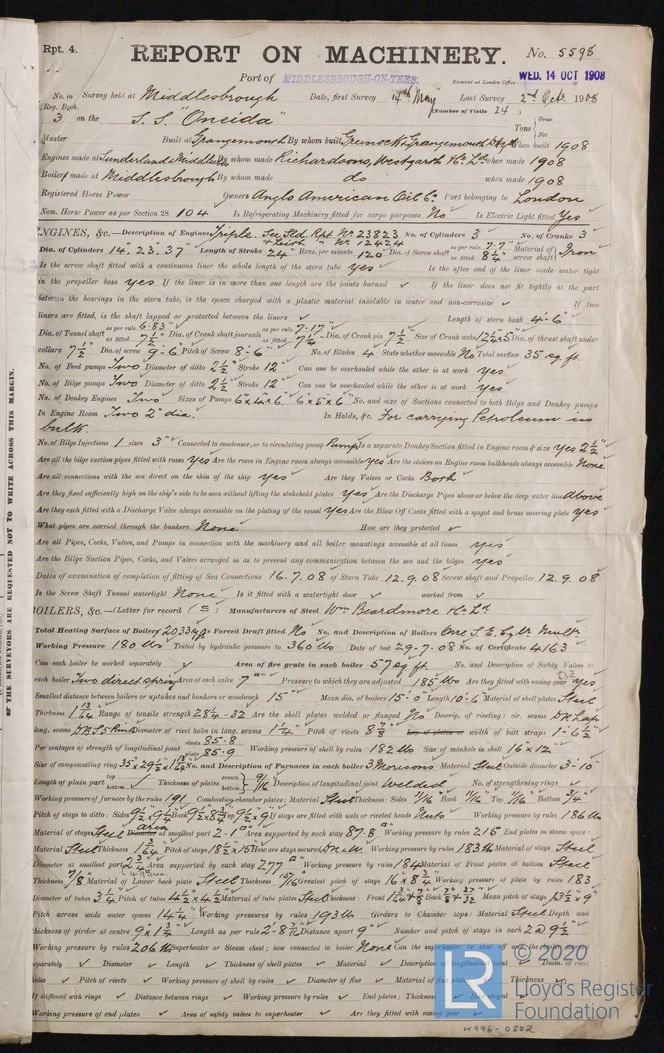 Rpt. 4.
REPORT ON MACHINERY.
No. 5598
Port of MIDDLESBROUGH-ON-TEES.
Received at London Office WED. 14 OCT 1908
No. in Survey held at Middlesbrough Date, first Survey 14th May Last Survey 2nd Oct. 1908
Reg. Book.
(Number of Visits 24)
3 on the S.S. "Oneida"
Tons { Gross Net
Master Built at Grangemouth By whom built Greenock & Grangemouth When built 1908
Engines made at Sunderland & Middlesbro By whom made Richardsons, Westgarth & Co. Ld. when made 1908
Boilers made at Middlesbrough By whom made do when made 1908
Registered Horse Power Owners Anglo American Oil Co. Port belonging to London
Nom. Horse Power as per Section 28 104 Is Refrigerating Machinery fitted for cargo purposes No Is Electric Light fitted Yes
ENGINES, &c.—Description of Engines Triple. See Sld. Rpt. No. 23823 No. of Cylinders 3 No. of Cranks 3
& Leith " No. 12424
Dia. of Cylinders 14", 23", 37" Length of Stroke 24" Revs. per minute 120 Dia. of Screw shaft as per rule 7.7" as fitted 8 1/4" Material of screw shaft Iron
Is the screw shaft fitted with a continuous liner the whole length of the stern tube yes Is the after end of the liner made water tight
in the propeller boss yes If the liner is in more than one length are the joints burned ✓ If the liner does not fit tightly at the part
between the bearings in the stern tube, is the space charged with a plastic material insoluble in water and non-corrosive ✓ If two
liners are fitted, is the shaft lapped or protected between the liners ✓ Length of stern bush 4'-6"
Dia. of Tunnel shaft as per rule 6.83" as fitted 7 1/2" Dia. of Crank shaft journals as per rule 7.17" as fitted 7 1/2" Dia. of Crank pin 7 1/2" Size of Crank webs Dia. of thrust shaft under
collars 7 1/2" Dia. of screw 9'-6" Pitch of Screw 8'-6" No. of Blades 4 State whether moveable No Total surface 35 sq. ft.
No. of Feed pumps Two Diameter of ditto 2 1/2" Stroke 12" Can one be overhauled while the other is at work yes
No. of Bilge pumps Two Diameter of ditto 2 1/2" Stroke 12" Can one be overhauled while the other is at work yes
No. of Donkey Engines Two Sizes of Pumps 6"x4"x6" 6"x5"x6" No. and size of Suctions connected to both Bilge and Donkey pumps
In Engine Room Two 2" dia. In Holds, &c. For carrying Petroleum in
bulk.
No. of Bilge Injections 1 sizes 3" Connected to condenser, or to circulating pump Pump Is a separate Donkey Suction fitted in Engine room & size Yes 2 1/2"
Are all the bilge suction pipes fitted with roses yes Are the roses in Engine room always accessible yes Are the sluices on Engine room bulkheads always accessible None
Are all connections with the sea direct on the skin of the ship yes Are they Valves or Cocks Both
Are they fixed sufficiently high on the ship's side to be seen without lifting the stokehold plates yes Are the Discharge Pipes above or below the deep water line Above
Are they each fitted with a Discharge Valve always accessible on the plating of the vessel yes Are the Blow Off Cocks fitted with a spigot and brass covering plate yes
What pipes are carried through the bunkers None How are they protected ✓
Are all Pipes, Cocks, Valves, and Pumps in connection with the machinery and all boiler mountings accessible at all times yes
Are the Bilge Suction Pipes, Cocks, and Valves arranged so as to prevent any communication between the sea and the bilges yes
Dates of examination of completion of fitting of Sea Connections 16.7.08 of Stern Tube 12.9.08 Screw shaft and Propeller 12.9.08
Is the Screw Shaft Tunnel watertight None Is it fitted with a watertight door ✓ worked from ✓
BOILERS, &c.—(Letter for record (S) Manufacturers of Steel Wm Beardmore & Co. Ld.
Total Heating Surface of Boilers 2033 Is Forced Draft fitted No No. and Description of Boilers One S.E. Cylr. Multr.
Working Pressure 180 lbs Tested by hydraulic pressure to 360 lbs Date of test 29-7-08 No. of Certificate 4163
Can each boiler be worked separately ✓ Area of fire grate in each boiler 57 sq ft. No. and Description of Safety Valves to
each boiler Two direct spring Area of each valve 7" Pressure to which they are adjusted 185 lbs Are they fitted with easing gear yes
Smallest distance between boilers or uptakes and bunkers or woodwork 15" Mean dia. of boilers 15'-0" Length 10'-6" Material of shell plates Steel
Thickness 1 13/64 Range of tensile strength 28 1/4-32 Are the shell plates welded or flanged No Descrip. of riveting: cir. seams DR Lap
long. seams Dia. of rivet holes in long. seams 1 1/4" Pitch of rivets 8 7/8 Lap of plates or width of butt straps
Per centages of strength of longitudinal joint rivets 85.8 plate 85.9 Working pressure of shell by rules 182 lbs Size of manhole in shell 16"x12"
Size of compensating ring No. and Description of Furnaces in each boiler 3 Morisons Material Steel Outside diameter 3'-10"
Length of plain part top bottom Thickness of plates crown bottom 9/16 Description of longitudinal joint Welded No. of strengthening rings ✓
Working pressure of furnace by the rules 191 Combustion chamber plates: Material Steel Thickness: Sides 11/16" Back 11/16" Top 11/16" Bottom 3/4"
Pitch of stays to ditto: Sides Back Top If stays are fitted with nuts or riveted heads Nuts Working pressure by rules 186 lbs
Material of stays Steel area Diameter at smallest part 2.1" Area supported by each stay 87.8 Working pressure by rules 215 End plates in steam space:
Material Steel Thickness Pitch of stays How are stays secured Working pressure by rules 183 lbs Material of stays Steel
Diameter at smallest part Area supported by each stay 277 Working pressure by rules 184 Material of Front plates at bottom Steel
Thickness 7/8" Material of Lower back plate Steel Thickness 15/16 Greatest pitch of stays 16"x8 3/4 Working pressure of plate by rules 183
Diameter of tubes 3 1/4 Pitch of tubes 4 1/2 x 4 1/2 Material of tube plates Steel Thickness: Front Back Mean pitch of stays
Pitch across wide water spaces 14 1/4" Working pressures by rules 193 lbs Girders to Chamber tops: Material Steel Depth and
thickness of girder at centre 9"x1 3/4 Length as per rule Distance apart 9" Number and pitch of stays in each 2 @ 9 1/2
Working pressure by rules 206 lbs Superheater or Steam chest; how connected to boiler None Can the
separately ✓ Diameter ✓ Length ✓ Thickness of shell plates ✓ Material ✓ Description
holes ✓ Pitch of rivets ✓ Working pressure of shell by rules ✓ Diameter of flue ✓ Material of Thickness
If stiffened with rings ✓ Distance between rings ✓ Working pressure by rules ✓ End plates: Thickness
Working pressure of end plates ✓ Area of safety valves to superheater ✓ Are they fitted with easing gear ✓
OF THE SURVEYORS ARE REQUESTED NOT TO WRITE ACROSS THIS MARGIN.
© 2020
LR
Lloyd's Register
Foundation
W996-0302